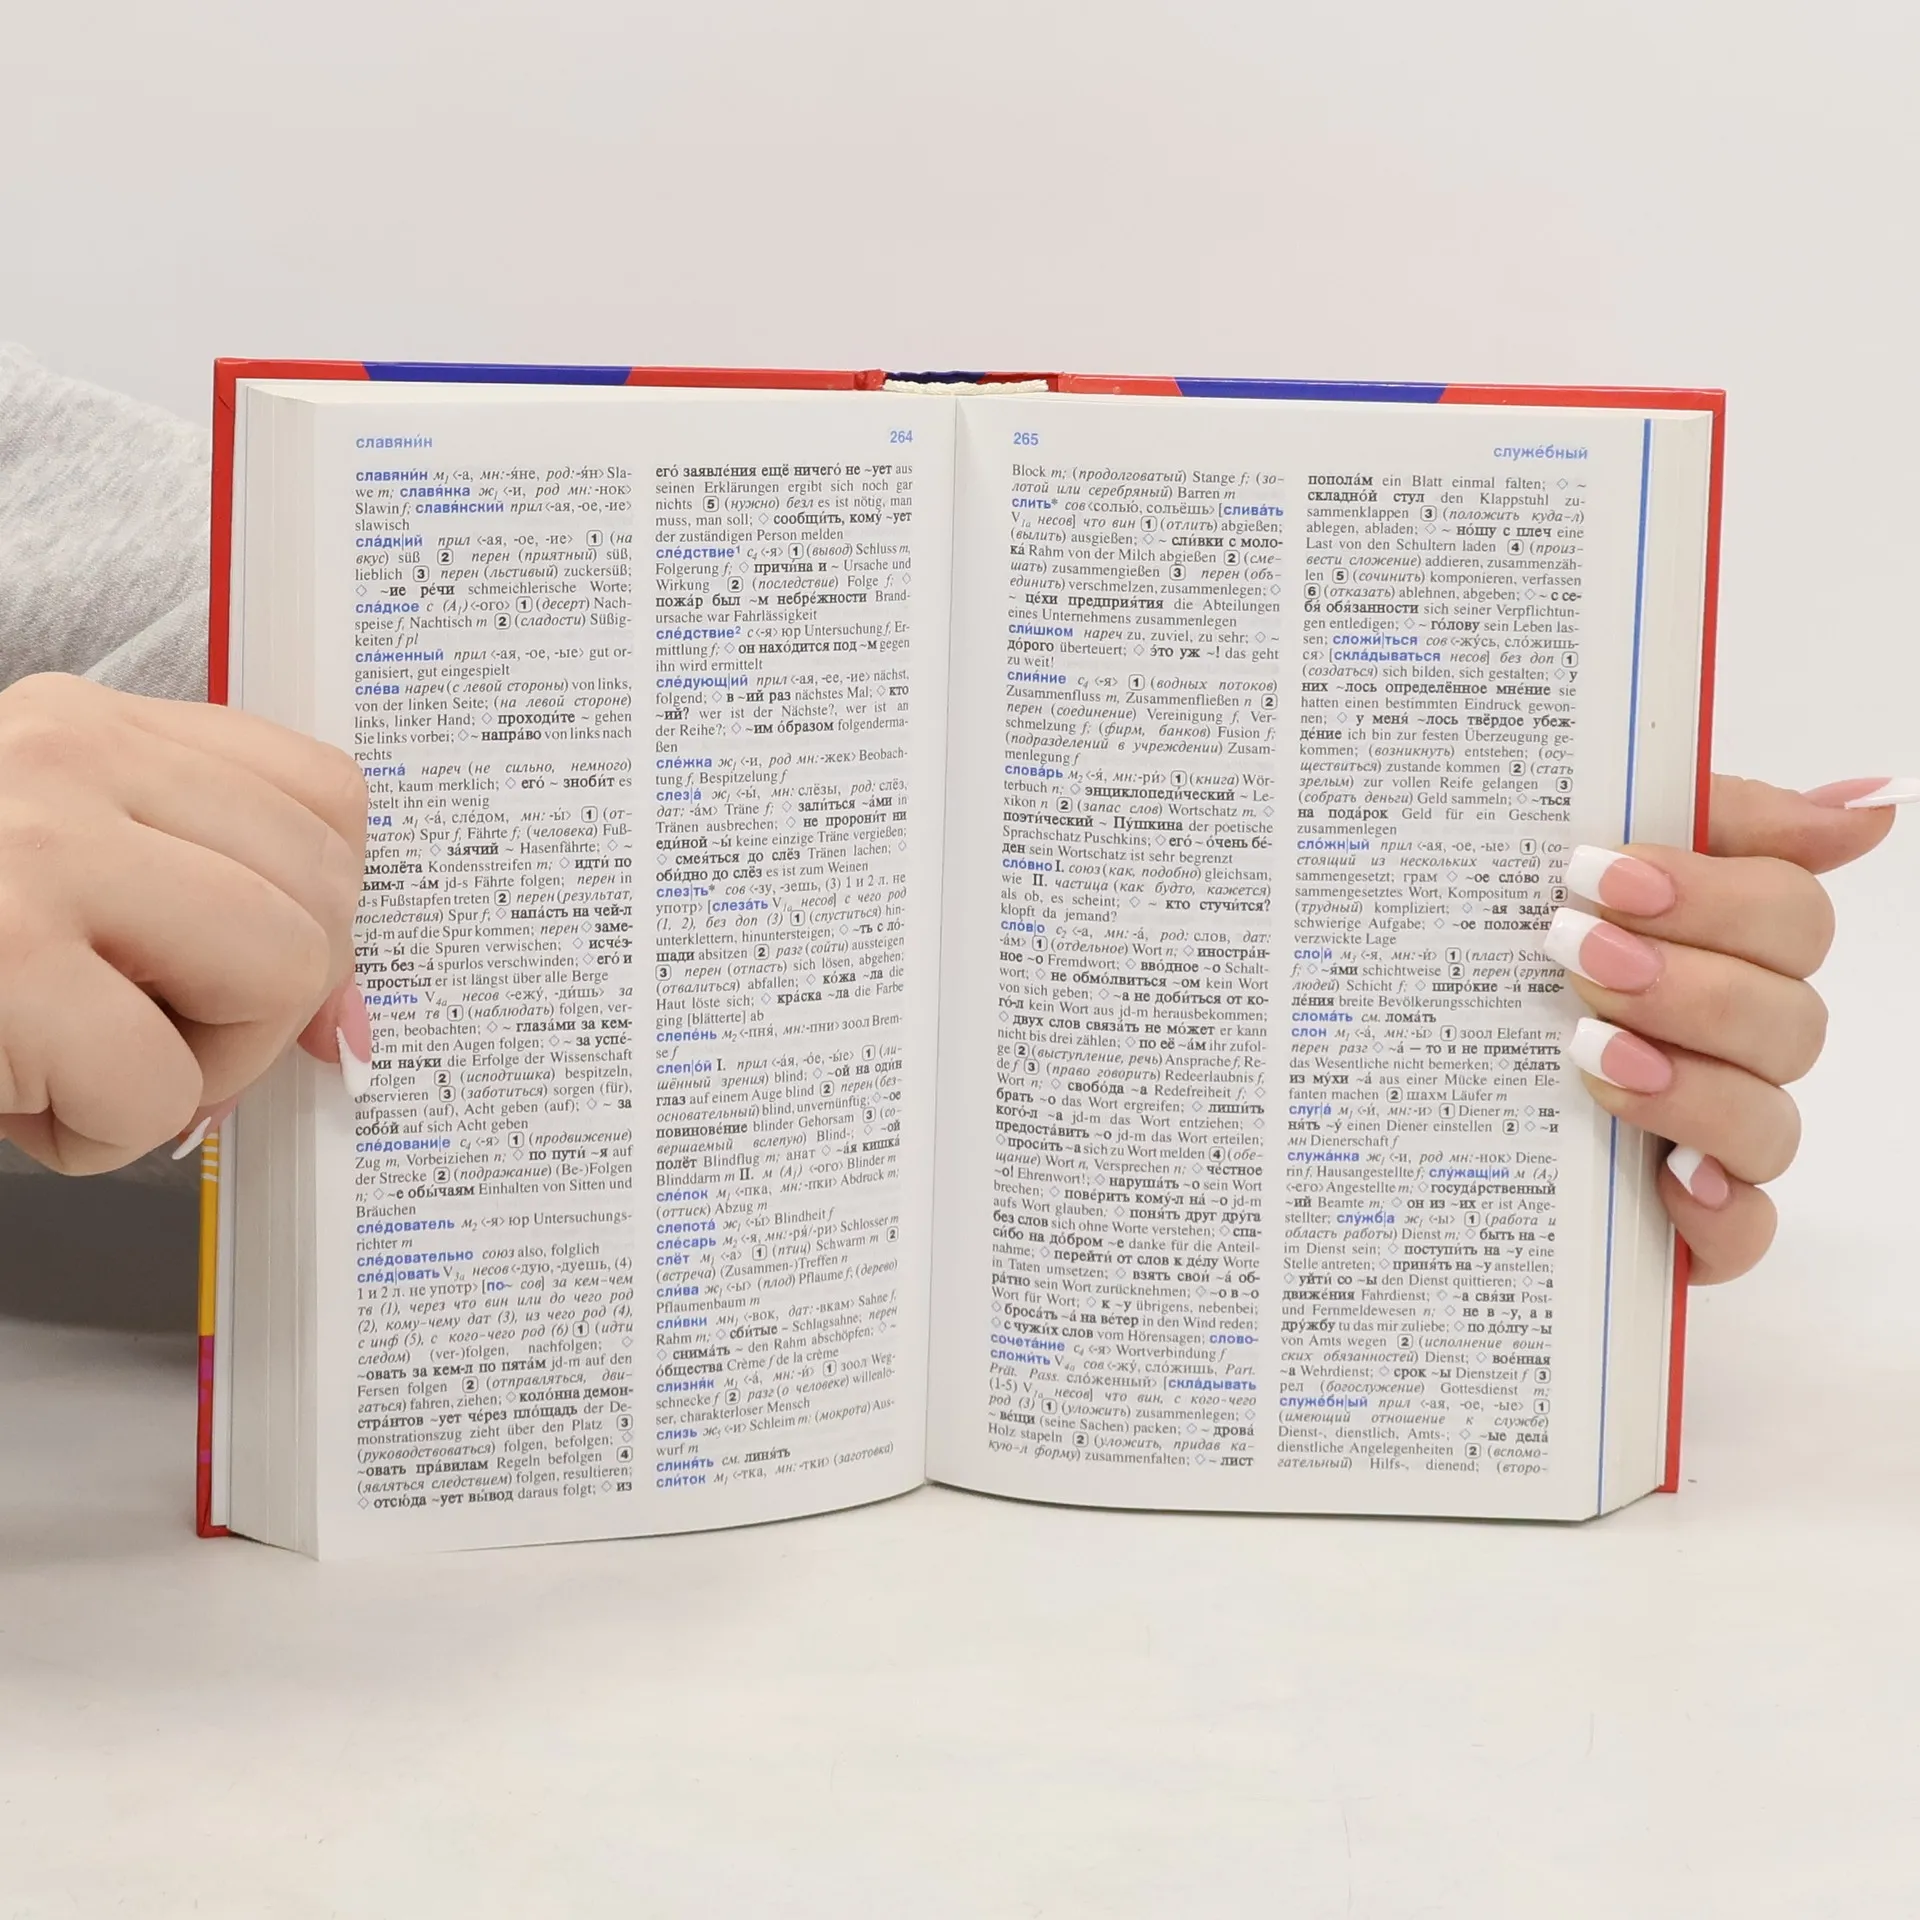 славяни́н
264
славяни́н м₁ ‹-а, мн:-я́не, род:-я́н› Sla-
we m; славя́нка ж₁ ‹-и, род мн:-нок›
Slawin f; славя́нский прил ‹-ая, -ое, -ие›
slawisch
сла́дк|ий прил ‹-ая, -ое, -ие› 1 (на
вкус) süß 2 перен (приятный) süß,
lieblich 3 перен (льстивый) zuckersüß;
◇ ~ие ре́чи schmeichlerische Worte;
сла́дкое с (A₁) ‹-ого› 1 (десерт) Nach-
speise f, Nachtisch m 2 (сладости) Süßig-
keiten f pl
сла́женный прил ‹-ая, -ое, -ые› gut or-
ganisiert, gut eingespielt
сле́ва нареч (с левой стороны) von links,
von der linken Seite; (на левой стороне)
links, linker Hand; ◇ проходи́те ~ gehen
Sie links vorbei; ◇ ~ напра́во von links nach
rechts
легка́ нареч (не сильно, немного)
icht, kaum merklich; ◇ его́ ~ зноби́т es
östelt ihn ein wenig
лед м₁ ‹-а́, сле́дом, мн: -ы́› 1 (от-
ечаток) Spur f, Fährte f; (человека) Fuß-
apfen m; ◇ за́ячий ~ Hasenfährte; ◇ ~
амолёта Kondensstreifen m; ◇ идти́ по
ьим-л ~а́м jd-s Fährte folgen; перен in
d-s Fußstapfen treten 2 перен (результат,
последствия) Spur f; ◇ напа́сть на чей-л
~ jd-m auf die Spur kommen; перен ◇ заме-
сти́ ~ы́ die Spuren verwischen; ◇ исче́з-
нуть без ~а́ spurlos verschwinden; ◇ его́ и
~ просты́л er ist längst über alle Berge
леди́ть V₄ₐ несов ‹-ежу́, -ди́шь› за
м-чем тв 1 (наблюдать) folgen, ver-
gen, beobachten; ◇ ~ глаза́ми за кем-
d-m mit den Augen folgen; ◇ ~ за успе́-
ми нау́ки die Erfolge der Wissenschaft
rfolgen 2 (исподтишка) bespitzeln,
observieren 3 (заботиться) sorgen (für),
aufpassen (auf), Acht geben (auf); ◇ ~ за
собо́й auf sich Acht geben
сле́довани|е с₄ ‹-я› 1 (продвижение)
Zug m, Vorbeiziehen n; ◇ по пути́ ~я auf
der Strecke 2 (подражание) (Be-)Folgen
n; ◇ ~е обы́чаям Einhalten von Sitten und
Bräuchen
сле́дователь м₂ ‹-я› юр Untersuchungs-
richter m
сле́довательно союз also, folglich
сле́д|овать V₃ₐ несов ‹-дую, -дуешь, (4)
1 и 2 л. не употр› [по~ сов] за кем-чем
тв (1), через что вин или до чего род
(2), кому-чему дат (3), из чего род (4),
с инф (5), с кого-чего род (6) 1 (идти
следом) (ver-)folgen, nachfolgen; ◇
~овать за кем-л по пята́м jd-m auf den
Fersen folgen 2 (отправляться, дви-
гаться) fahren, ziehen; ◇ коло́нна демон-
стра́нтов ~ует че́рез пло́щадь der De-
monstrationszug zieht über den Platz 3
(руководствоваться) folgen, befolgen; ◇
~овать пра́вилам Regeln befolgen 4
(являться следствием) folgen, resultieren;
◇ отсю́да ~ует вы́вод daraus folgt; ◇ из
его́ заявле́ния ещё ничего́ не ~ует aus
seinen Erklärungen ergibt sich noch gar
nichts 5 (нужно) безл es ist nötig, man
muss, man soll; ◇ сообщи́ть, кому́ ~ует
der zuständigen Person melden
сле́дствие¹ с₄ ‹-я› 1 (вывод) Schluss m,
Folgerung f; ◇ причи́на и ~ Ursache und
Wirkung 2 (последствие) Folge f; ◇
пожа́р был ~м небре́жности Brand-
ursache war Fahrlässigkeit
сле́дствие² с ‹-я› юр Untersuchung f, Er-
mittlung f; ◇ он нахо́дится под ~м gegen
ihn wird ermittelt
сле́дующ|ий прил ‹-ая, -ее, -ие› nächst,
folgend; ◇ в ~ий раз nächstes Mal; ◇ кто
~ий? wer ist der Nächste?, wer ist an
der Reihe?; ◇ ~им о́бразом folgenderma-
ßen
сле́жка ж₁ ‹-и, род мн:-жек› Beobach-
tung f, Bespitzelung f
слез|а́ ж₁ ‹-ы́, мн: слёзы, род: слёз,
дат: -а́м› Träne f; ◇ зали́ться ~а́ми in
Tränen ausbrechen; ◇ не пророни́т ни
еди́ной ~ы́ keine einzige Träne vergießen;
◇ смея́ться до слёз Tränen lachen; ◇
оби́дно до слёз es ist zum Weinen
слез|ть* сов ‹-зу, -зешь, (3) 1 и 2 л. не
употр› [слеза́ть V₁ₐ несов] с чего род
(1, 2), без доп (3) 1 (спуститься) hin-
unterklettern, hinuntersteigen; ◇ ~ть с ло́-
шади absitzen 2 разг (сойти) aussteigen
3 перен (отпасть) sich lösen, abgehen;
(отвалиться) abfallen; ◇ ко́жа ~ла die
Haut löste sich; ◇ кра́ска ~ла die Farbe
ging [blätterte] ab
слепе́нь м₂ ‹-пня́, мн:-пни› зоол Brem-
se f
слеп|о́й I. прил ‹-а́я, -о́е, -ы́е› 1 (ли-
шённый зрения) blind; ◇ ~о́й на оди́н
глаз auf einem Auge blind 2 перен (без-
основательный) blind, unvernünftig; ◇ ~о́е
повинове́ние blinder Gehorsam 3 (со-
вершаемый вслепую) Blind-; ◇ ~о́й
полёт Blindflug m; анат ◇ ~а́я кишка́
Blinddarm m II. м (A₁) ‹-о́го› Blinder m
сле́пок м₁ ‹-пка, мн:-пки› Abdruck m;
(оттиск) Abzug m
слепота́ ж₁ ‹-ы́› Blindheit f
сле́сарь м₂ ‹-я, мн:-ря́/-ри› Schlosser m
слёт м₁ ‹-а› 1 (птиц) Schwarm m 2
(встреча) (Zusammen-)Treffen n
сли́ва ж₁ ‹-ы› (плод) Pflaume f; (дерево)
Pflaumenbaum m
сли́вки мн₁ ‹-вок, дат: -вкам› Sahne f,
Rahm m; ◇ сби́тые ~ Schlagsahne; перен
◇ снима́ть ~ den Rahm abschöpfen; ◇ ~
о́бщества Crème f de la crème
слизня́к м₁ ‹-а́, мн:-и́› 1 зоол Weg-
schnecke f 2 разг (о человеке) willenlo-
ser, charakterloser Mensch
слизь ж₅ ‹-и› Schleim m; (мокрота) Aus-
wurf m
слиня́ть см. линя́ть
сли́ток м₁ ‹-тка, мн:-тки› (заготовка)
265
служе́бный
Block m; (продолговатый) Stange f; (зо-
лотой или серебряный) Barren m
слить* сов ‹солью́, сольёшь› [слива́ть
V₁ₐ несов] что вин 1 (отлить) abgießen;
(вылить) ausgießen; ◇ ~ сли́вки с моло-
ка́ Rahm von der Milch abgießen 2 (сме-
шать) zusammengießen 3 перен (объ-
единить) verschmelzen, zusammenlegen; ◇
~ це́хи предприя́тия die Abteilungen
eines Unternehmens zusammenlegen
сли́шком нареч zu, zuviel, zu sehr; ◇ ~
до́рого überteuert; ◇ э́то уж ~! das geht
zu weit!
слия́ние с₄ ‹-я› 1 (водных потоков)
Zusammenfluss m, Zusammenfließen n 2
перен (соединение) Vereinigung f, Ver-
schmelzung f; (фирм, банков) Fusion f;
(подразделений в учреждении) Zusam-
menlegung f
слова́рь м₂ ‹-я́, мн:-ри́› 1 (книга) Wör-
terbuch n; ◇ энциклопеди́ческий ~ Le-
xikon n 2 (запас слов) Wortschatz m. ◇
поэти́ческий ~ Пу́шкина der poetische
Sprachschatz Puschkins; ◇ его́ ~ о́чень бе́-
ден sein Wortschatz ist sehr begrenzt
сло́вно I. союз (как, подобно) gleichsam,
wie II. частица (как будто, кажется)
als ob, es scheint; ◇ ~ кто стучи́тся?
klopft da jemand?
сло́в|о с₂ ‹-а, мн:-а́, род: слов, дат:
-а́м› 1 (отдельное) Wort n; ◇ иностра́н-
ное ~о Fremdwort; ◇ вво́дное ~о Schalt-
wort; ◇ не обмо́лвиться ~ом kein Wort
von sich geben; ◇ ~а не доби́ться от ко-
го́-л kein Wort aus jd-m herausbekommen;
◇ двух слов связа́ть не мо́жет er kann
nicht bis drei zählen; ◇ по её ~а́м ihr zufol-
ge 2 (выступление, речь) Ansprache f, Re-
de f 3 (право говорить) Redeerlaubnis f,
Wort n; ◇ свобо́да ~а Redefreiheit f; ◇
брать ~о das Wort ergreifen; ◇ лиши́ть
кого́-л ~а jd-m das Wort entziehen; ◇
предоста́вить ~о jd-m das Wort erteilen;
◇ проси́ть ~а sich zu Wort melden 4 (обе-
щание) Wort n, Versprechen n; ◇ че́стное
~о! Ehrenwort!; ◇ наруша́ть ~о sein Wort
brechen; ◇ пове́рить кому́-л на́ ~о jd-m
aufs Wort glauben; ◇ поня́ть друг дру́га
без слов sich ohne Worte verstehen; ◇ спа-
си́бо на до́бром ~е danke für die Anteil-
nahme; ◇ перейти́ от слов к де́лу Worte
in Taten umsetzen; ◇ взять свои́ ~а́ об-
ра́тно sein Wort zurücknehmen; ◇ ~о в ~о
Wort für Wort; ◇ к ~у übrigens, nebenbei;
◇ броса́ть ~а́ на ве́тер in den Wind reden;
◇ с чужи́х слов vom Hörensagen; слово-
сочета́ние с₄ ‹-я› Wortverbindung f
сложи́ть V₄ₐ сов ‹-жу́, сло́жишь, Part.
Prät. Pass. сло́женный› [скла́дывать
(1-5) V₁ₐ несов] что вин, с кого-чего
род (3) 1 (уложить) zusammenlegen; ◇
~ ве́щи (seine Sachen) packen; ◇ ~ дрова́
Holz stapeln 2 (уложить, придав ка-
кую-л форму) zusammenfalten; ◇ ~ лист
попола́м ein Blatt einmal falten; ◇ ~
складно́й стул den Klappstuhl zu-
sammenklappen 3 (положить куда-л)
ablegen, abladen; ◇ ~ но́шу с плеч eine
Last von den Schultern laden 4 (произ-
вести сложение) addieren, zusammenzäh-
len 5 (сочинить) komponieren, verfassen
6 (отказать) ablehnen, abgeben; ◇ ~ с се-
бя́ обя́занности sich seiner Verpflichtun-
gen entledigen; ◇ ~ го́лову sein Leben las-
sen; сложи́|ться сов ‹-жу́сь, сло́жишь-
ся› [скла́дываться несов] без доп 1
(создаться) sich bilden, sich gestalten; ◇ у
них ~лось определённое мне́ние sie
hatten einen bestimmten Eindruck gewon-
nen; ◇ у меня́ ~лось твёрдое убеж-
де́ние ich bin zur festen Überzeugung ge-
kommen; (возникнуть) entstehen; (осу-
ществиться) zustande kommen 2 (стать
зрелым) zur vollen Reife gelangen 3
(собрать деньги) Geld sammeln; ◇ ~ться
на пода́рок Geld für ein Geschenk
zusammenlegen
сло́жн|ый прил ‹-ая, -ое, -ые› 1 (со-
стоящий из нескольких частей) zu-
sammengesetzt; грам ◇ ~ое сло́во zu
sammengesetztes Wort, Kompositum n 2
(трудный) kompliziert; ◇ ~ая зада́ч
schwierige Aufgabe; ◇ ~ое положе́н
verzwickte Lage
сло|й м₃ ‹-я, мн:-и́› 1 (пласт) Schic
f; ◇ ~я́ми schichtweise 2 перен (группа
людей) Schicht f; ◇ широ́кие ~и́ насе-
ле́ния breite Bevölkerungsschichten
слома́ть см. лома́ть
слон м₁ ‹-а́, мн:-ы́› 1 зоол Elefant m;
перен разг ◇ ~а́ — то и не приме́тить
das Wesentliche nicht bemerken; ◇ де́лать
из му́хи ~а́ aus einer Mücke einen Ele-
fanten machen 2 шахм Läufer m
слуг|а́ м₁ ‹-и́, мн:-и› 1 Diener m; ◇ на-
ня́ть ~у́ einen Diener einstellen 2 ◇ ~и
мн Dienerschaft f
служа́нка ж₁ ‹-и, род мн:-нок› Diene-
rin f, Hausangestellte f; слу́жащ|ий м (A₂)
‹-его› Angestellte m; ◇ госуда́рственный
~ий Beamte m; ◇ он из ~их er ist Ange-
stellter; слу́жб|а ж₁ ‹-ы› 1 (работа и
область работы) Dienst m; ◇ быть на ~е
im Dienst sein; ◇ поступи́ть на ~у eine
Stelle antreten; ◇ приня́ть на ~у anstellen;
◇ уйти́ со ~ы den Dienst quittieren; ◇ ~а
движе́ния Fahrdienst; ◇ ~а свя́зи Post-
und Fernmeldewesen n; ◇ не в ~у, а в
дру́жбу tu das mir zuliebe; ◇ по до́лгу ~ы
von Amts wegen 2 (исполнение воин-
ских обязанностей) Dienst; ◇ вое́нная
~а Wehrdienst; ◇ срок ~ы Dienstzeit f 3
рел (богослужение) Gottesdienst m;
служе́бн|ый прил ‹-ая, -ое, -ые› 1
(имеющий отношение к службе)
Dienst-, dienstlich, Amts-; ◇ ~ые дела́
dienstliche Angelegenheiten 2 (вспомо-
гательный) Hilfs-, dienend; (второ-